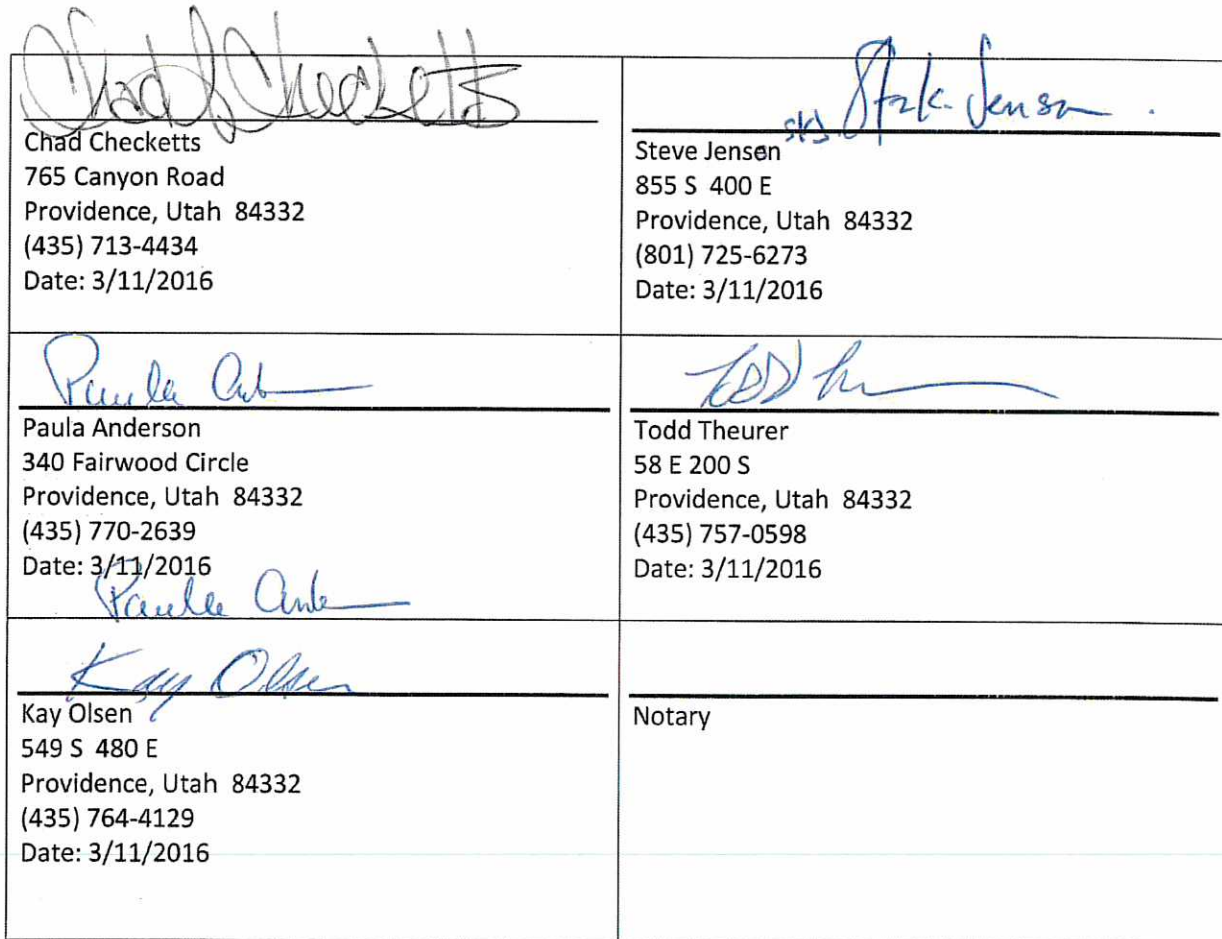 Chad J Checketts
Chad Checketts
765 Canyon Road
Providence, Utah 84332
(435) 713-4434
Date: 3/11/2016
SKJ Jensen
Steve Jensen
855 S 400 E
Providence, Utah 84332
(801) 725-6273
Date: 3/11/2016
Paula
Paula Anderson
340 Fairwood Circle
Providence, Utah 84332
(435) 770-2639
Date: 3/11/2016
Paula
Todd
Todd Theurer
58 E 200 S
Providence, Utah 84332
(435) 757-0598
Date: 3/11/2016
Kay Olsen
Kay Olsen
549 S 480 E
Providence, Utah 84332
(435) 764-4129
Date: 3/11/2016
Notary